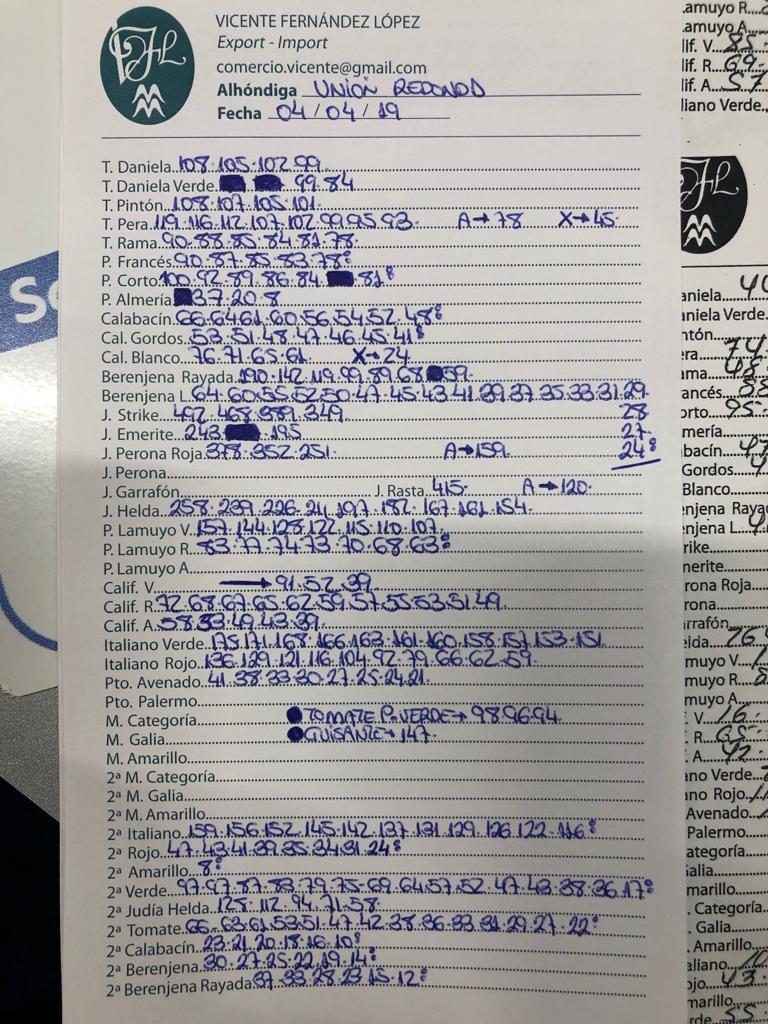 VICENTE FERNÁNDEZ LÓPEZ
Export - Import
comercio.vicente@gmail.com
Alhóndiga UNIÓN REDONDO
Fecha 04/04/19
T. Daniela 108.105.102.99
T. Daniela Verde 99.84
T. Pintón 108.107.105.101
T. Pera 119.116.112.107.102.99.95.93 A→78 X→45
T. Rama 90.88.85.84.81.78
P. Francés 90.87.85.83.78
P. Corto 100.92.89.86.84 81
P. Almería 37.20.8
Calabacín 66.64.61.60.56.54.52.48
Cal. Gordos 53.51.48.47.46.45.41
Cal. Blanco 76.71.65.61 X→24
Berenjena Rayada 190.142.119.99.89.68 59
Berenjena L. 64.60.55.52.50.47.45.43.41.39.37.35.33.31.29
J. Strike 492.468.389.349 28
J. Emerite 243 195 27
J. Perona Roja 378.352.251 A→159 24
J. Perona
J. Garrafón J. Rasta 415 A→120
J. Helda 258.239.226.211.197.182.167.161.154
P. Lamuyo V. 157.144.128.122.115.110.107
P. Lamuyo R. 83.77.74.73.70.68.63
P. Lamuyo A.
Calif. V. → 91.52.39
Calif. R. 72.68.67.65.62.59.57.55.53.51.49
Calif. A. 58.53.49.43.39
Italiano Verde 175.171.168.166.163.161.160.158.157.153.151
Italiano Rojo 136.129.121.116.104.92.79.66.62.59
Pto. Avenado 41.38.33.30.27.25.24.21
Pto. Palermo
M. Categoría TOMATE P. VERDE→98.96.94
M. Galia GUISANTE→147
M. Amarillo
2ª M. Categoría
2ª M. Galia
2ª M. Amarillo
2ª Italiano 159.156.152.145.142.137.131.129.126.122.116
2ª Rojo 47.43.41.39.35.34.31.24
2ª Amarillo 8
2ª Verde 97.97.87.83.79.75.69.64.57.52.47.43.38.36.17
2ª Judía Helda 128.112.94.71.58
2ª Tomate 66.63.61.53.51.47.42.38.36.33.31.29.27.22
2ª Calabacín 23.21.20.18.16.10
2ª Berenjena 30.27.25.22.19.14
2ª Berenjena Rayada 37.33.28.23.15.12